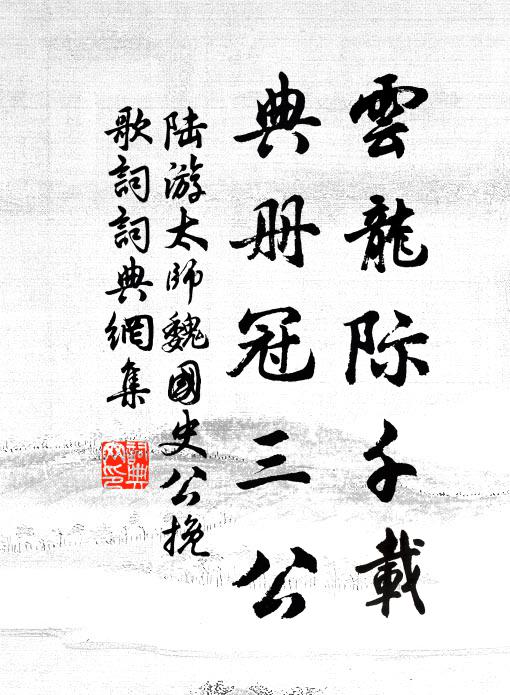 雲龍际千載
典册冠三公
陆游太师魏國史公挽
歌詞詞典網集